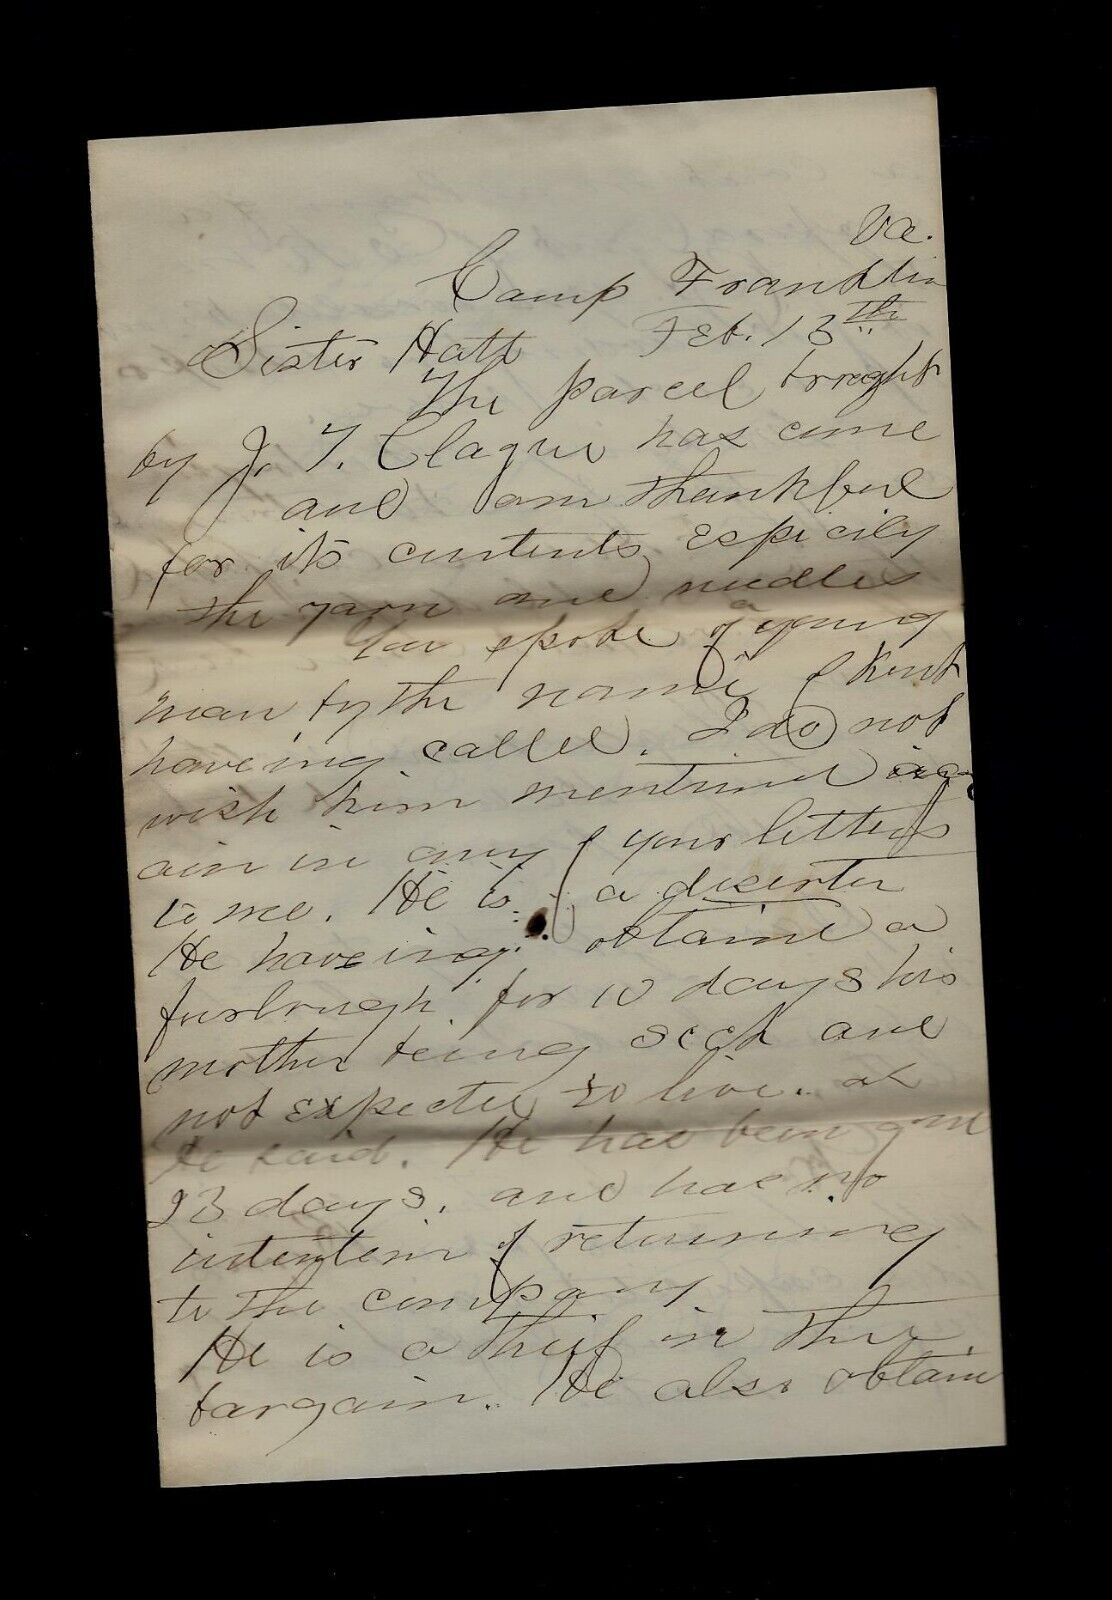 Va.
Camp Franklin
Feb. 13th
Sister Hatt
The parcel brought
by J. T. Clague has come
and am thankful
for its contents espicily
the yarn and needles
You spoke of a young
man by the name of Kent
haveing called. I do not
wish him mentioned ag
ain in any of your letters
to me. He is a diserter
He haveing obtaine a
furlough for 10 days his
mother being sick and
not expected to live. as
he said. He has been gone
23 days. and has no
intention of returning
to the company
He is a thief in the
bargain. He also obtain